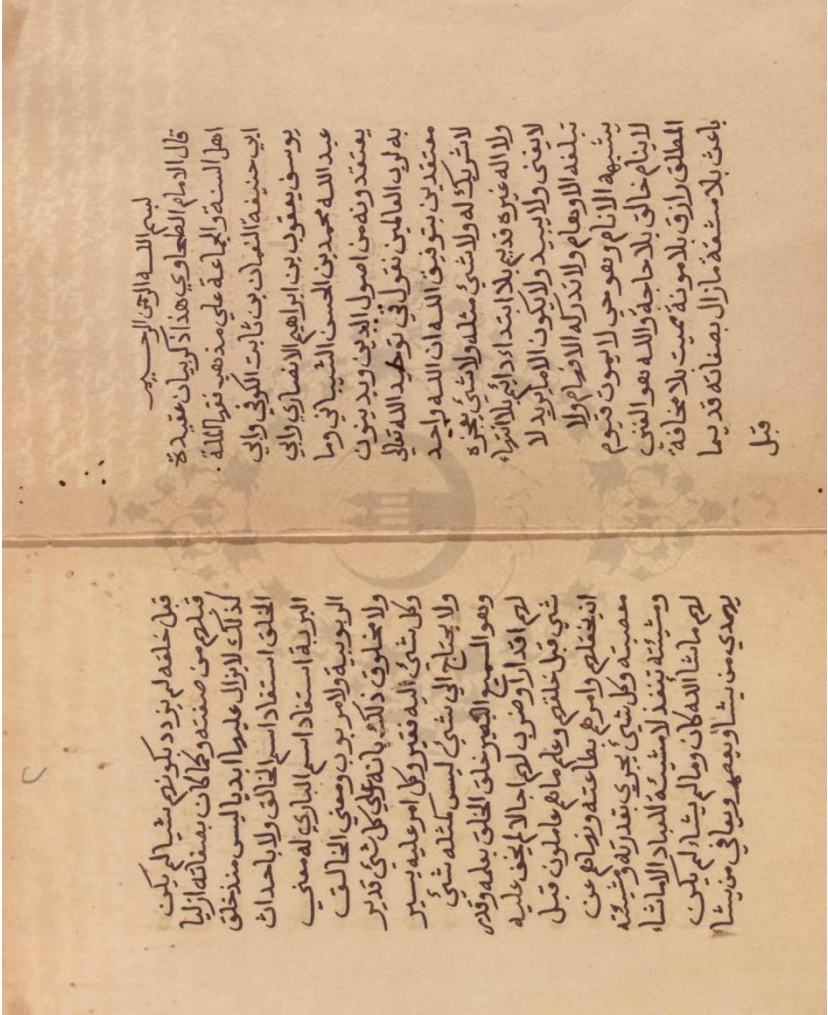 بسم الله الرحمن الرحيم
قال الامام الطحاوي هذا ذكر بيان عقيدة
اهل السنة والجماعة علي مذهب فقها الملة
ابي حنيفة النعمان بن ثابت الكوفي وابي
يوسف يعقوب بن ابراهيم الانصاري وابي
عبد الله محمد بن الحسن الشيباني وما
يعتقدونه من اصول الدين ويدينون
به لرب العالمين نقول في توحيد الله تعالي
معتقدين بتوفيق الله ان الله واحد
لا شريك له ولا شئ مثله ولا شئ يعجزه
ولا اله غيره قديم بلا ابتداء دائم بلا انتهاء
لا يفني ولا يبيد ولا يكون الا ما يريد لا
تبلغه الاوهام ولا تدركه الافهام ولا
يشبهه الانام وهو حي لا يموت قيوم
لا ينام خالق بلا حاجة والله هو الغني
المطلق رازق بلا مونة مميت بلا مخافة
باعث بلا مشقة ما زال بصفاته قديما
قبل
قبل خلقه لم يزدد بكونهم شيا لم يكن
قبلهم من صفته وكما كان بصفاته ازليا
كذلك لا يزال عليها ابديا ليس منذ خلق
الخلق استفاد اسم الخالق ولا باحداث
البرية استفاد اسم الباري له معني
الربوبية ولا مربوب ومعني الخالق
ولا مخلوق ذلك بانه علي كل شئ قدير
وكل شئ اليه فقير وكل امر عليه يسير
ولا يحتاج الي شئ ليس كمثله شئ
وهو السميع البصير خلق الخلق بعلمه وقدر
لهم اقدارا وضرب لهم اجالا لم يخف عليه
شي قبل خلقهم وعلم ما هم عاملون قبل
ان يخلقهم وامرهم بطاعته ونهاهم عن
معصيته وكل شئ يجري بقدرته ومشيئته
ومشيئته تنفذ لا مشيئة للعباد الا ماشاء
لهم ما شا الله كان وما لم يشاء لم يكن
يهدي من يشا ويعصم ويعافي من يشاء